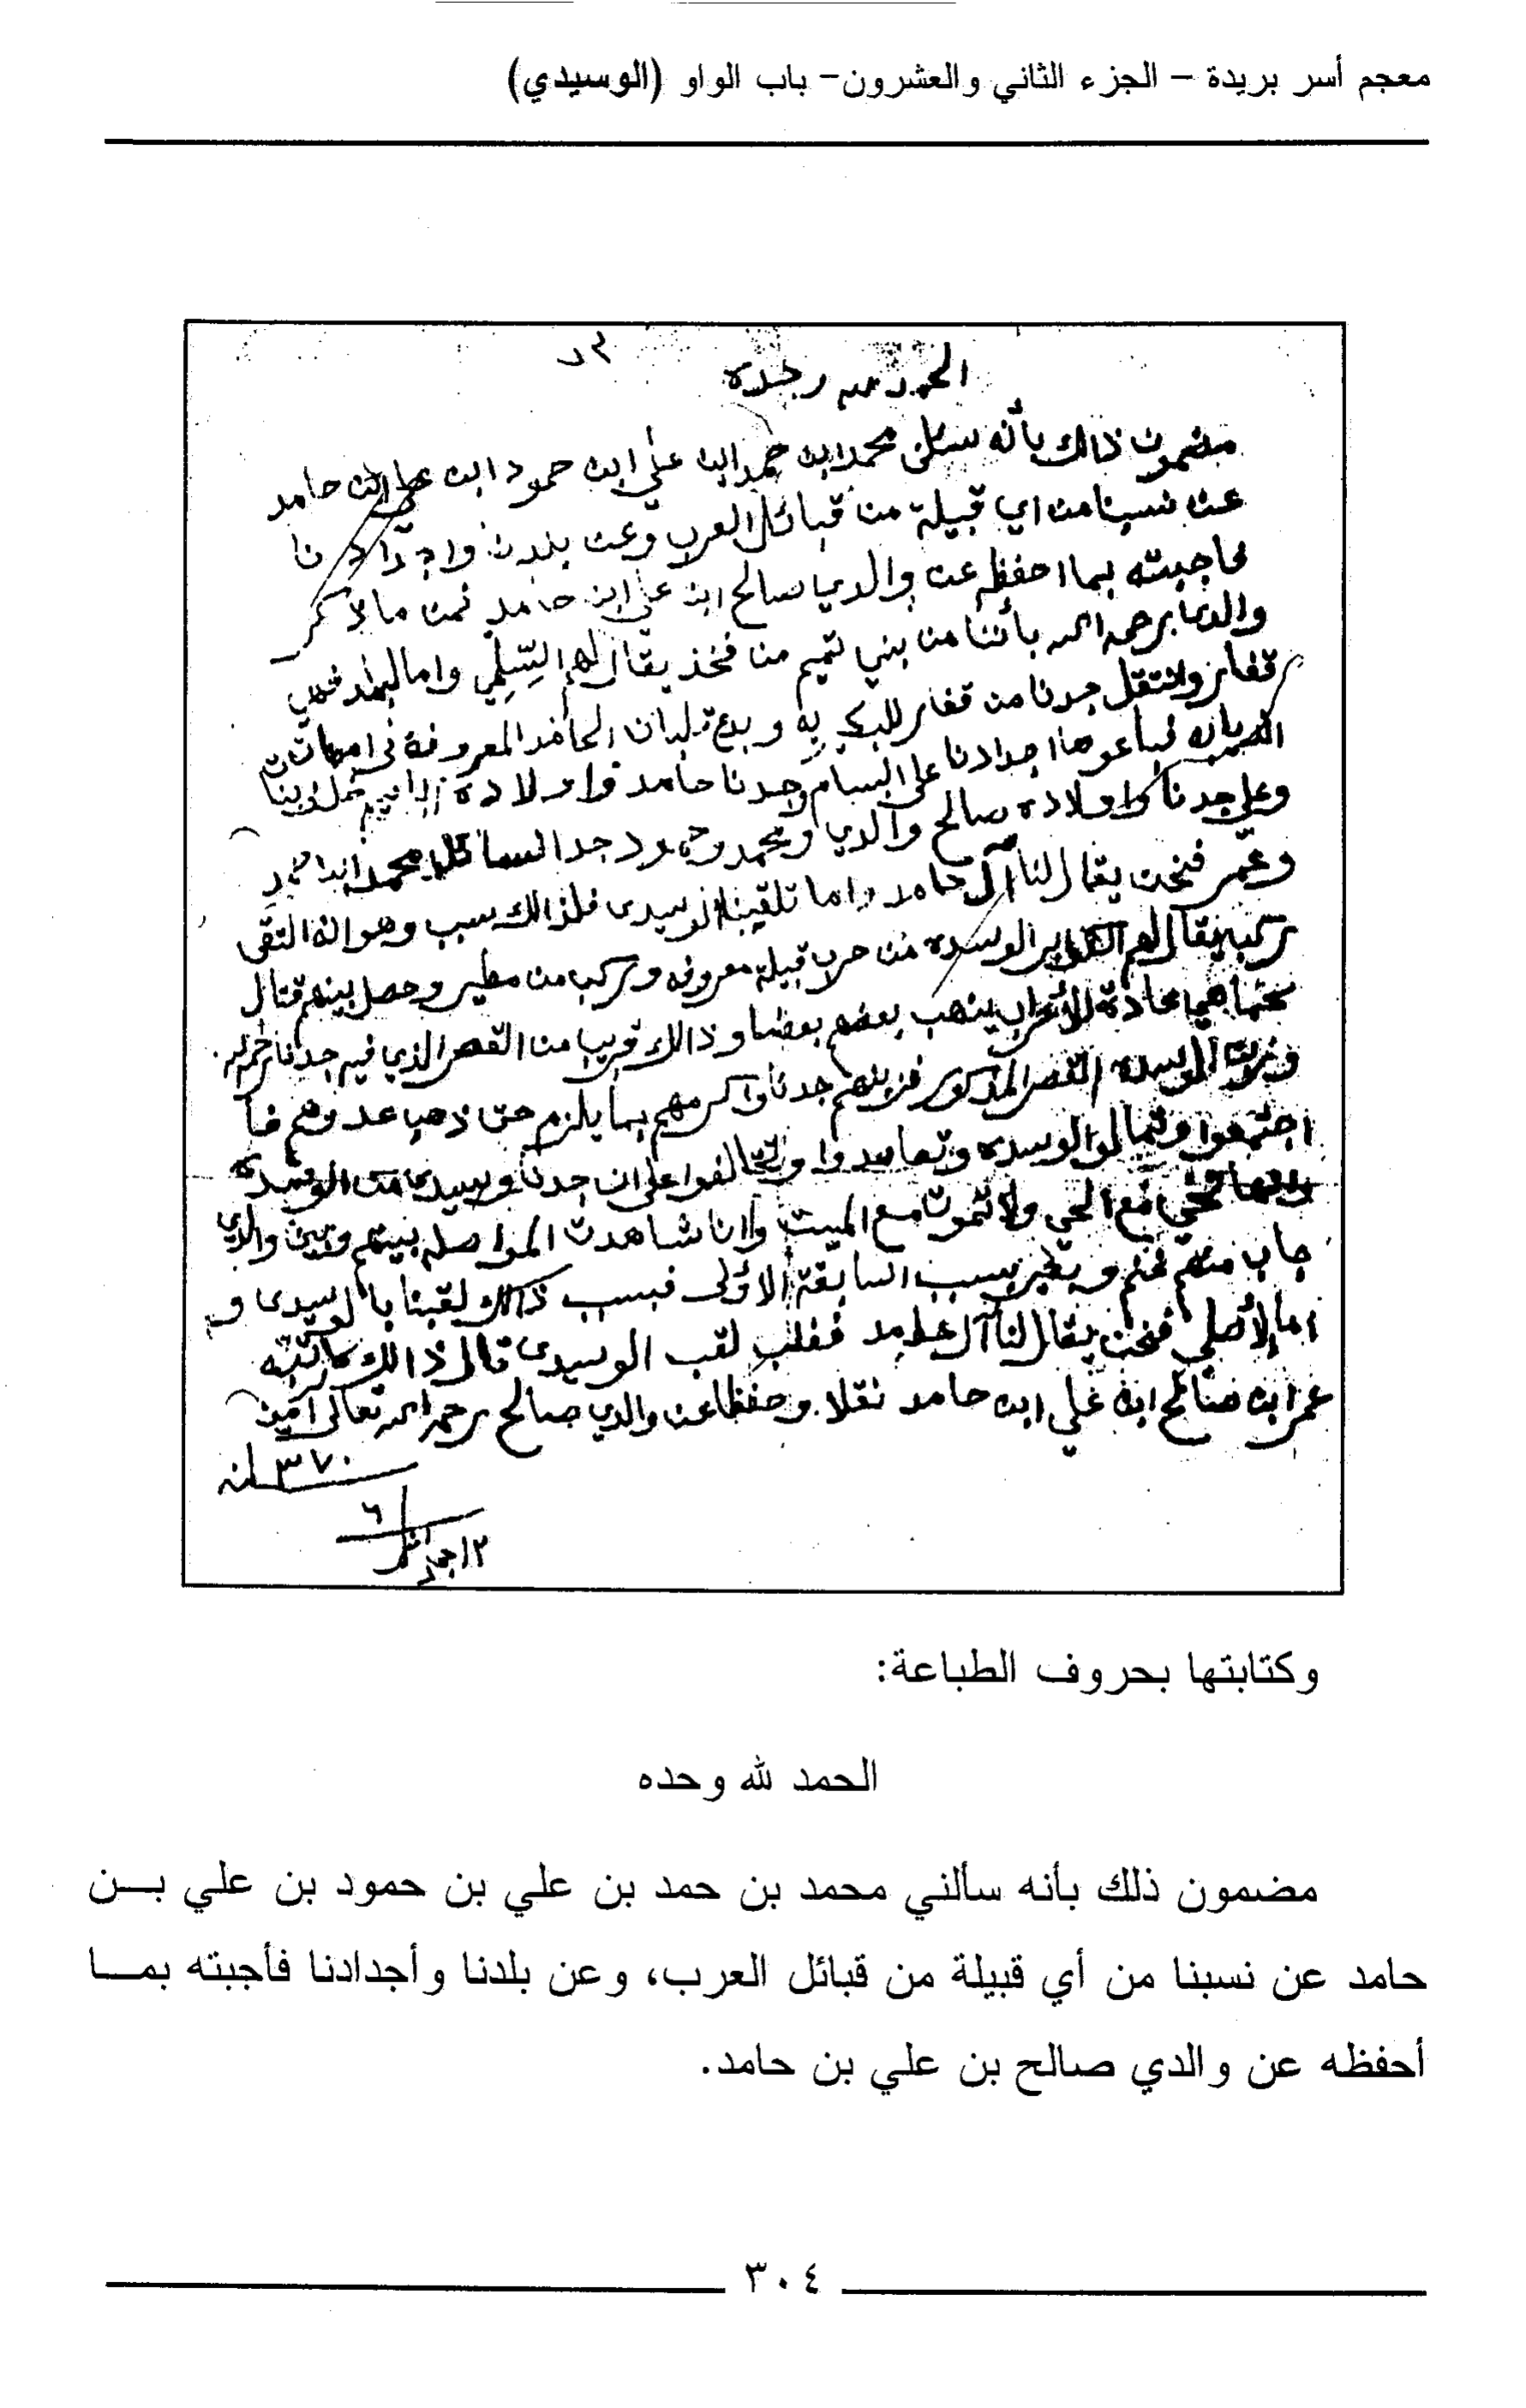 معجم أسر بريدة – الجزء الثاني والعشرون– باب الواو (الوسيدي)
الحمد لله وحده
مضمون ذالك بأنه سئلني محمد ابن حمد ابن علي ابن حمود ابن علي ابن حامد
عن نسبنا من اي قبيلة من قبائل العرب وعن بلدنا واجدادنا
فاجبته بما احفظه عن والدي صالح ابن علي ابن حامد فمن ما ذكر
والدي رحمه الله بأننا من بني تميم من فخذ يقال لهم واما البلد فهي
قفار وانتقل جدنا من قفار للبكيرية الحامد المعروفة
فباعوها اجدادنا على البسام وجدنا حامد واولاده
وعلي جدنا واولاده صالح والدي ومحمد وحمود جد السائل محمد ابن حمد
وعمر فنحن يقال لنا آل حامد واما تلقيبنا الوسيدي فلذالك سبب وهو انه التقى
ركب يقال لهم الوسده من حرب قبيلة معروفه وركب من مطير وحصل بينهم قتال
كما هي عادة الأعراب ينهب بعضهم بعضا وذالك قريب من القصر الذي فيه جدنا
الوسده القصر المذكور جدنا واكرمهم بما يلزم حتى ذهب عدوهم
اجتمعوا الوسده وتعاهدوا وتحالفوا على ان جدنا وسيدي من الوسده
تحيي مع الحي ولا تموت مع الميت وانا شاهدت المواصله بينهم وبين والدي
بسبب السابقة الأولى فبسب ذالك لقبنا بالوسيدى
اما الأصلي فنحن يقال لنا آل حامد فغلب لقب الوسيدى قال ذالك كاتبه
عمر ابن صالح ابن علي ابن حامد نقلا وحفظا عن والدي صالح رحمه الله تعالى آمين
وكتابتها بحروف الطباعة:
الحمد لله وحده
مضمون ذلك بأنه سألني محمد بن حمد بن علي بن حمود بن علي بن
حامد عن نسبنا من أي قبيلة من قبائل العرب، وعن بلدنا وأجدادنا فأجبته بما
أحفظه عن والدي صالح بن علي بن حامد.
٣٠٤